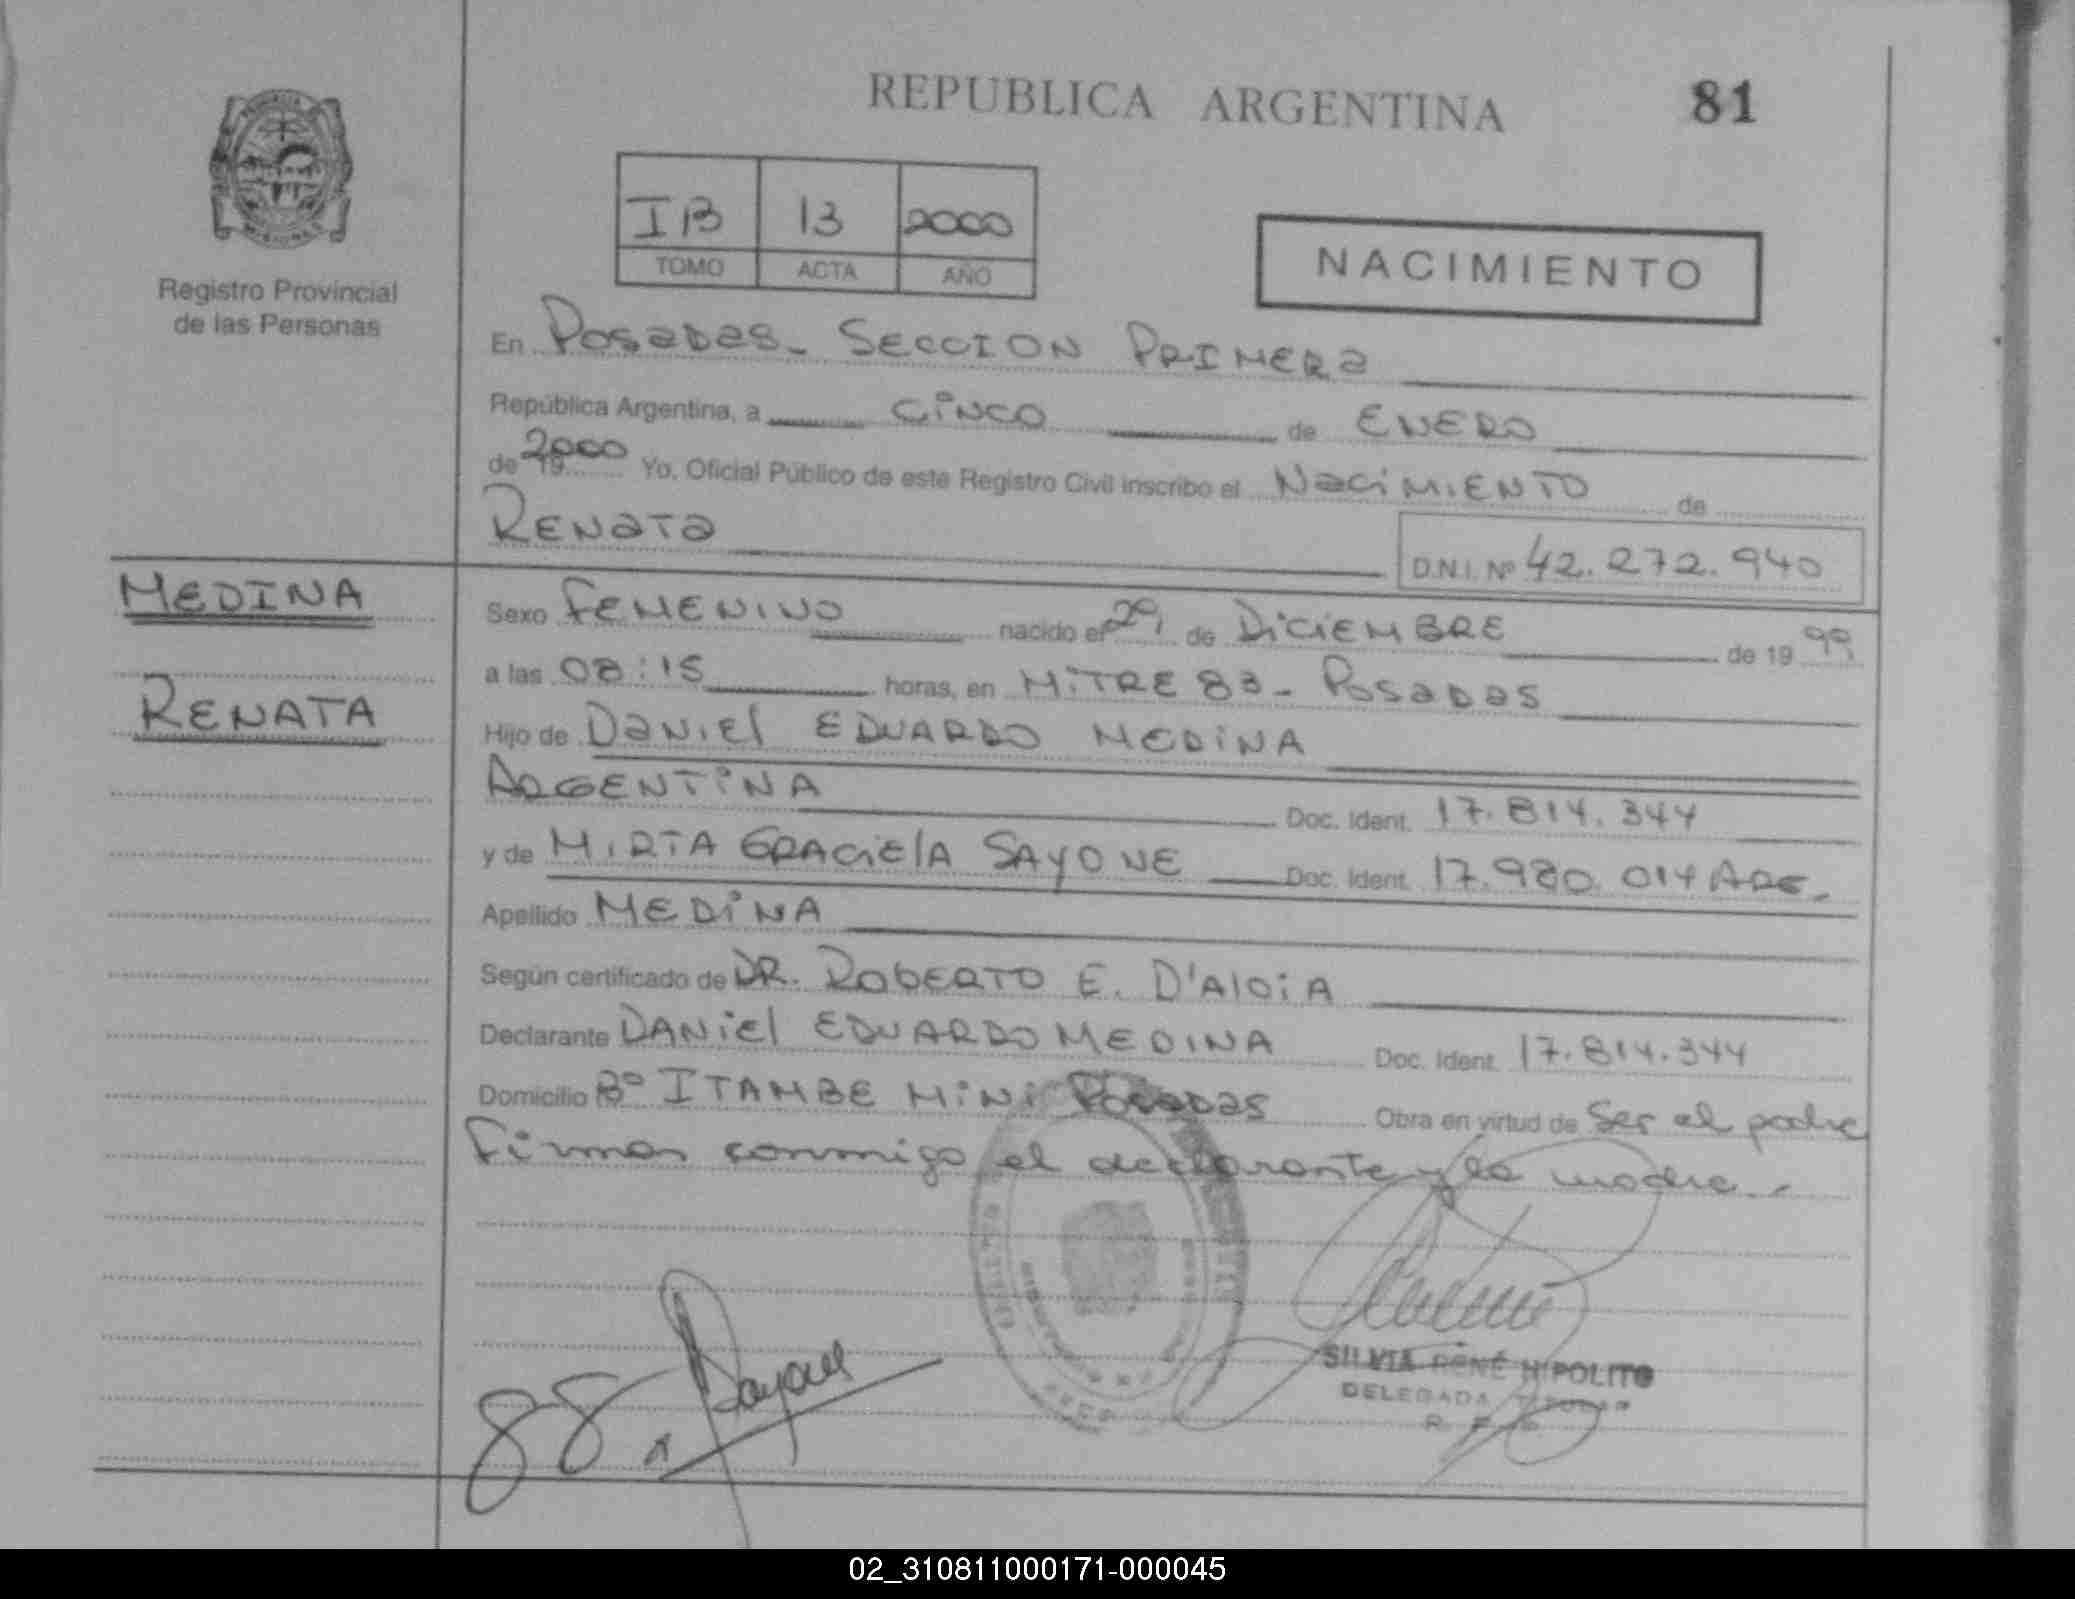 REPUBLICA ARGENTINA 81
IB 13 2000
TOMO ACTA AÑO
NACIMIENTO
Registro Provincial
de las Personas
En Posadas - SECCION PRIMERA
República Argentina, a CINCO de ENERO
de 19 2000 Yo, Oficial Público de este Registro Civil inscribo el NaciMIENTO de
RENATA
D.N.I. Nº 42.272.940
MEDINA
RENATA
Sexo FEMENINO nacido el 29 de DiCiEMBRE de 19 99
a las 08:15 horas, en MiTRE 83 - POSADAS
Hijo de DANiEl EDUARDO MEDiNA
ARGENTiNA Doc. Ident. 17.814.344
y de MIRTA GRACiElA SAYONE Doc. Ident. 17.980.014 ARG.
Apellido MEDiNA
Según certificado de DR. ROBERTO E. D'AlOiA
Declarante DANiEl EDUARDO MEDINA Doc. Ident. 17.814.344
Domicilio Bº ITAMBE MiNi POSADAS Obra en virtud de Ser el padre
Firman conmigo el declarante y la madre.-
SILVIA RENÉ HIPOLITO
DELEGADA TITULAR
R. P. P.
02_310811000171-000045